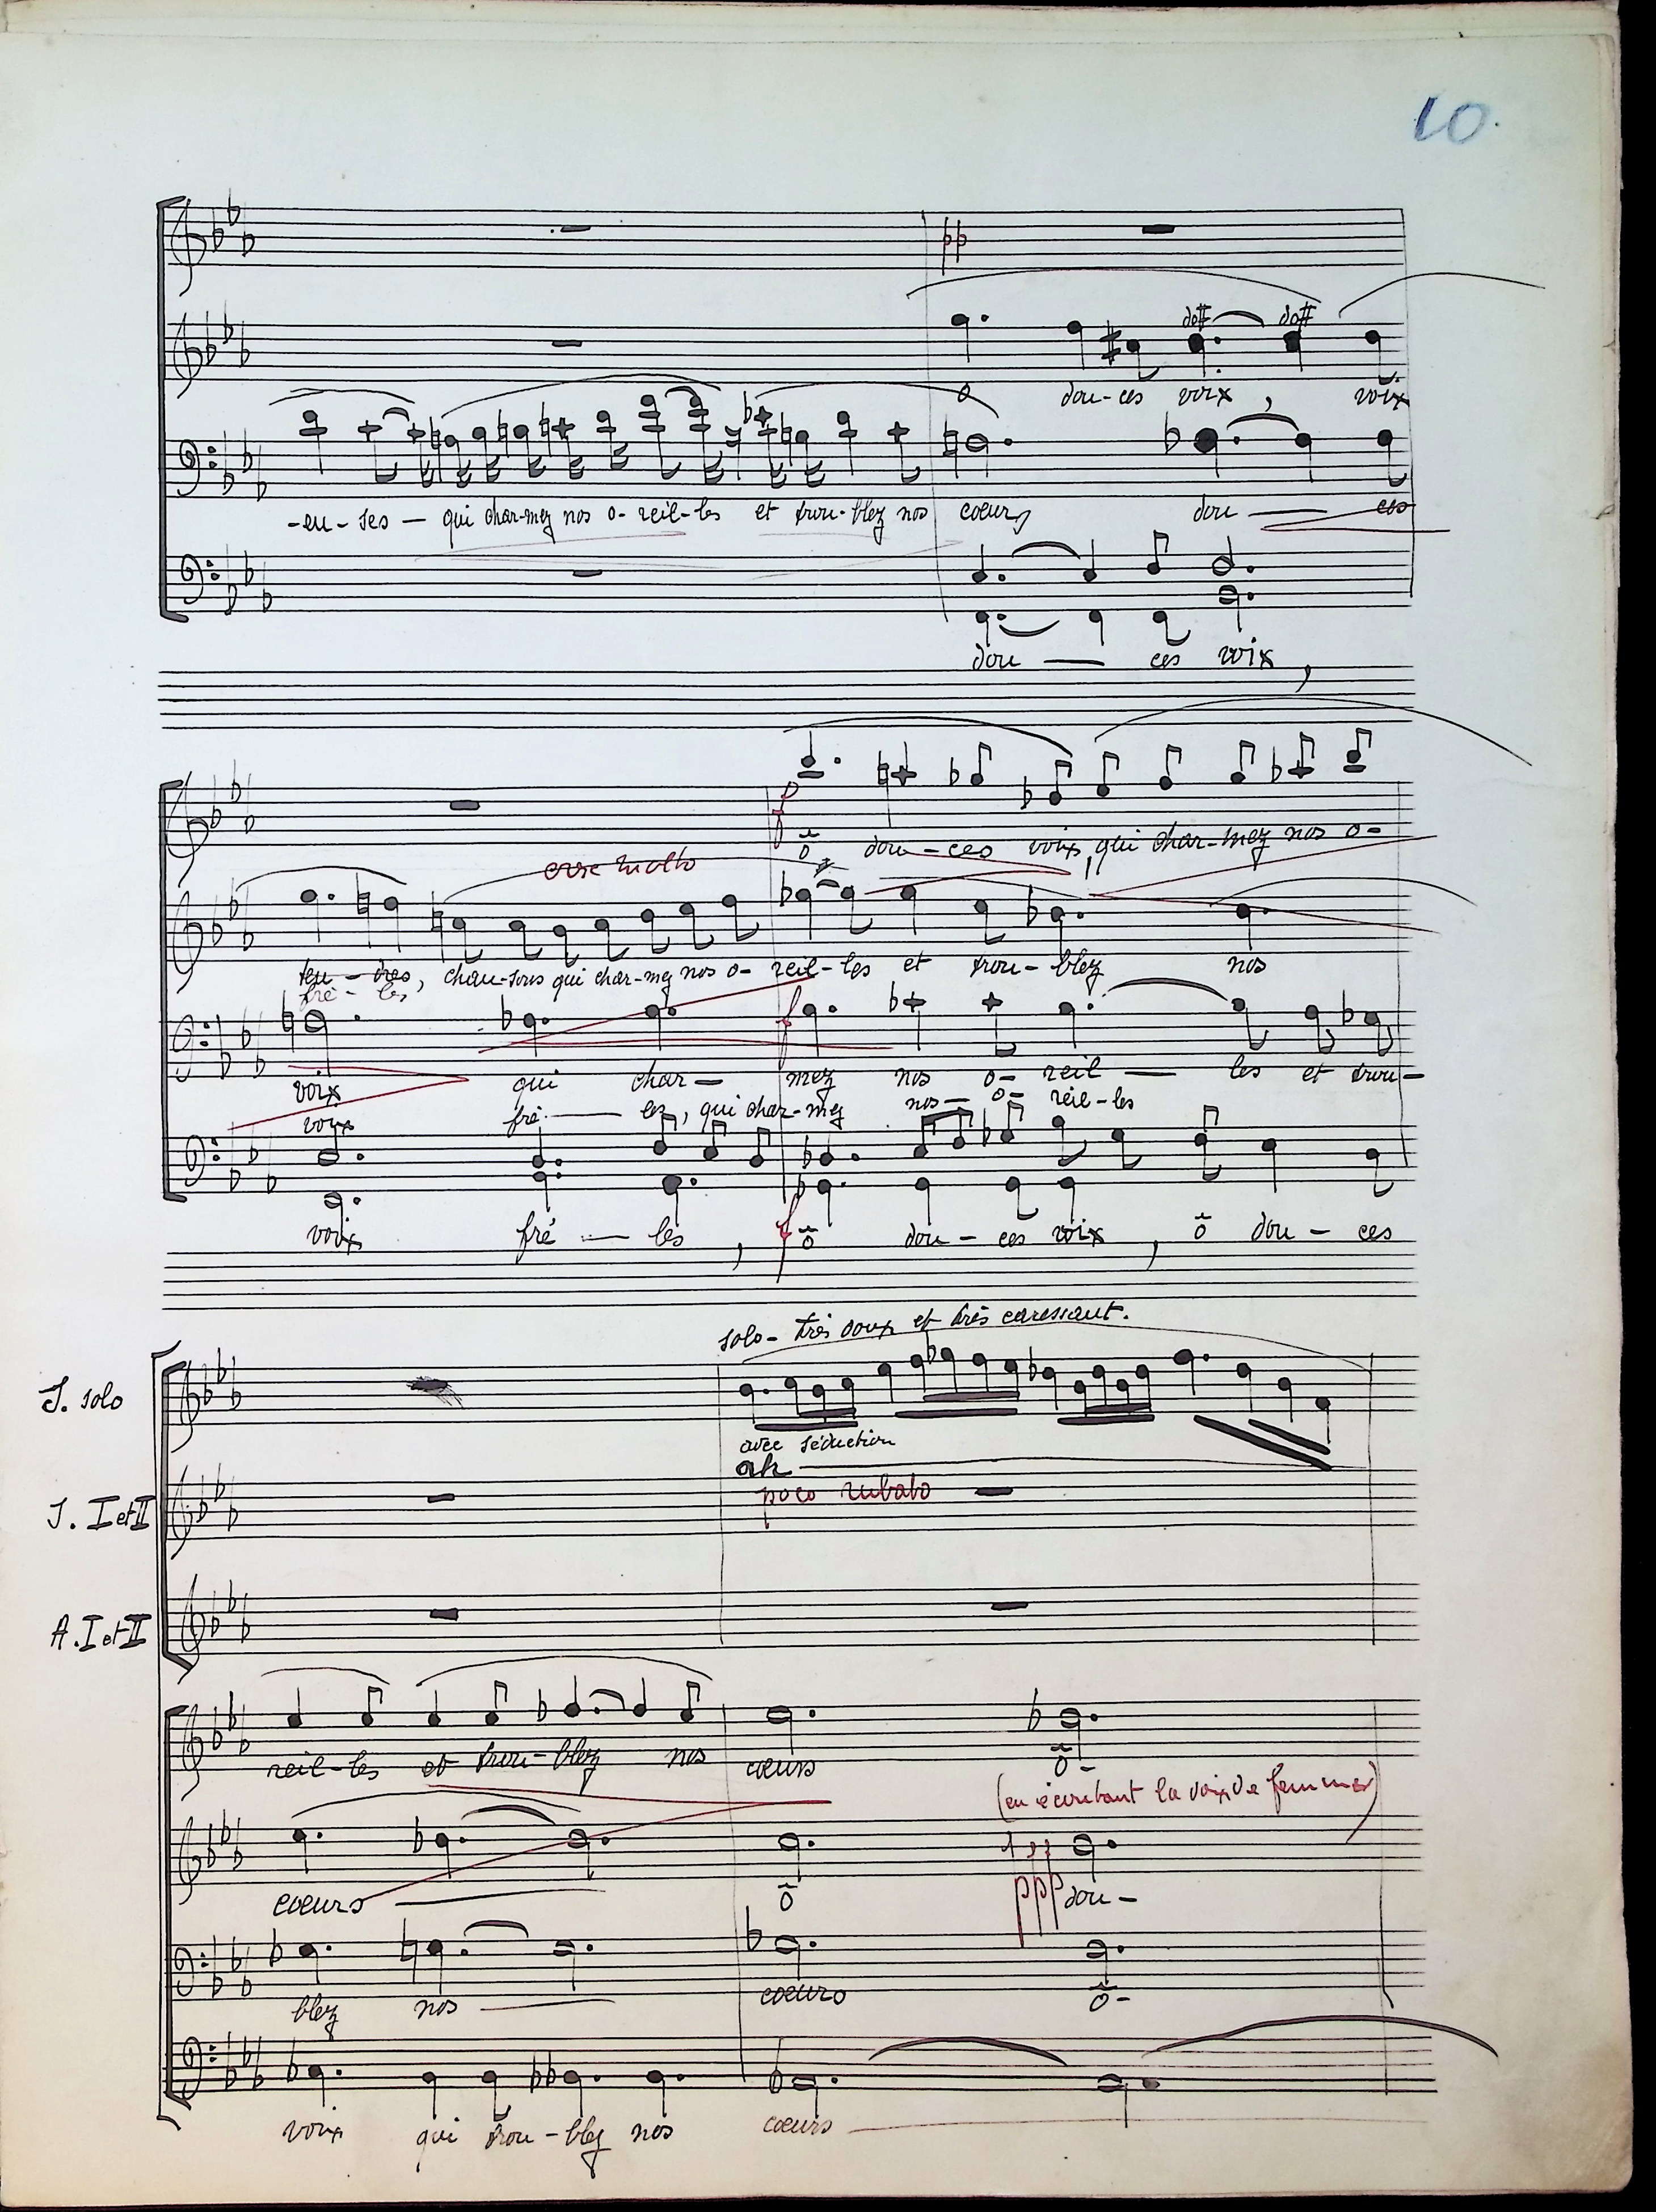 10.
pp
do# do#
ô dou-ces voix, voix
-eu-ses — qui char-mez nos o-reil-les et trou-blez nos coeurs dou — ces
dou — ces voix,
f
ô dou-ces voix, qui char-mez nos o-
cresc molto
ten-dres, chan-sons qui char-mez nos o-reil-les et trou-blez nos
frê-les
f
voix qui char — mez nos o-reil — les et trou-
voix frê — les, qui char-mez nos — o-reil-les
f
voix frê — les, ô dou-ces voix, ô dou-ces
solo - très doux et très caressant.
S. solo
avec séduction
ah
poco rubato
S. I et II
A. I et II
reil-les et trou-blez nos coeurs ô-
(en écoutant la voix de femmes)
ppp
coeurs — ô dou-
blez nos — coeurs ô-
voix qui trou-blez nos coeurs —